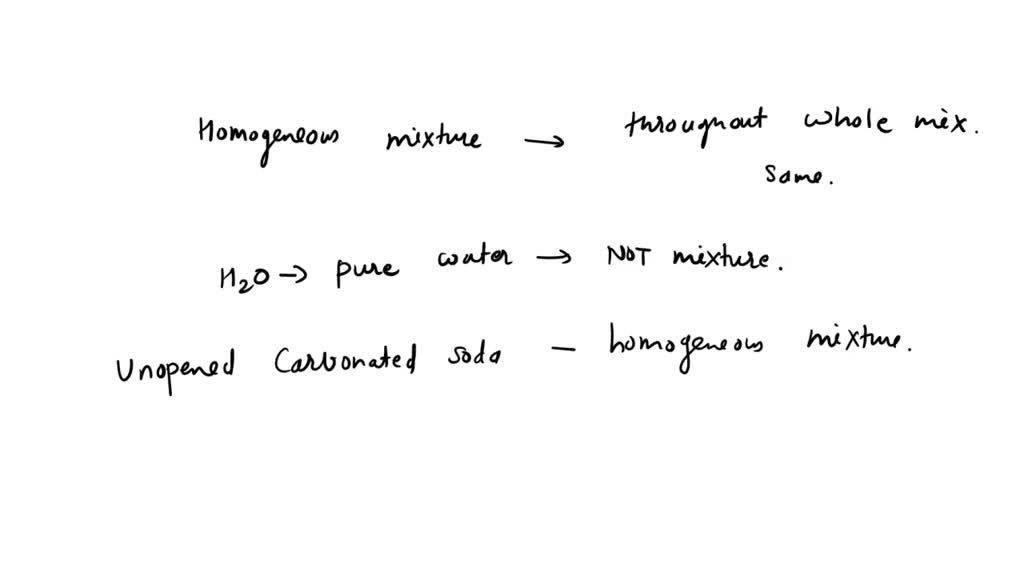 Homogeneous mixture → throughout whole mix.
Same.
H₂O → pure water → NOT mixture.
Unopened Carbonated soda – homogeneous mixture.